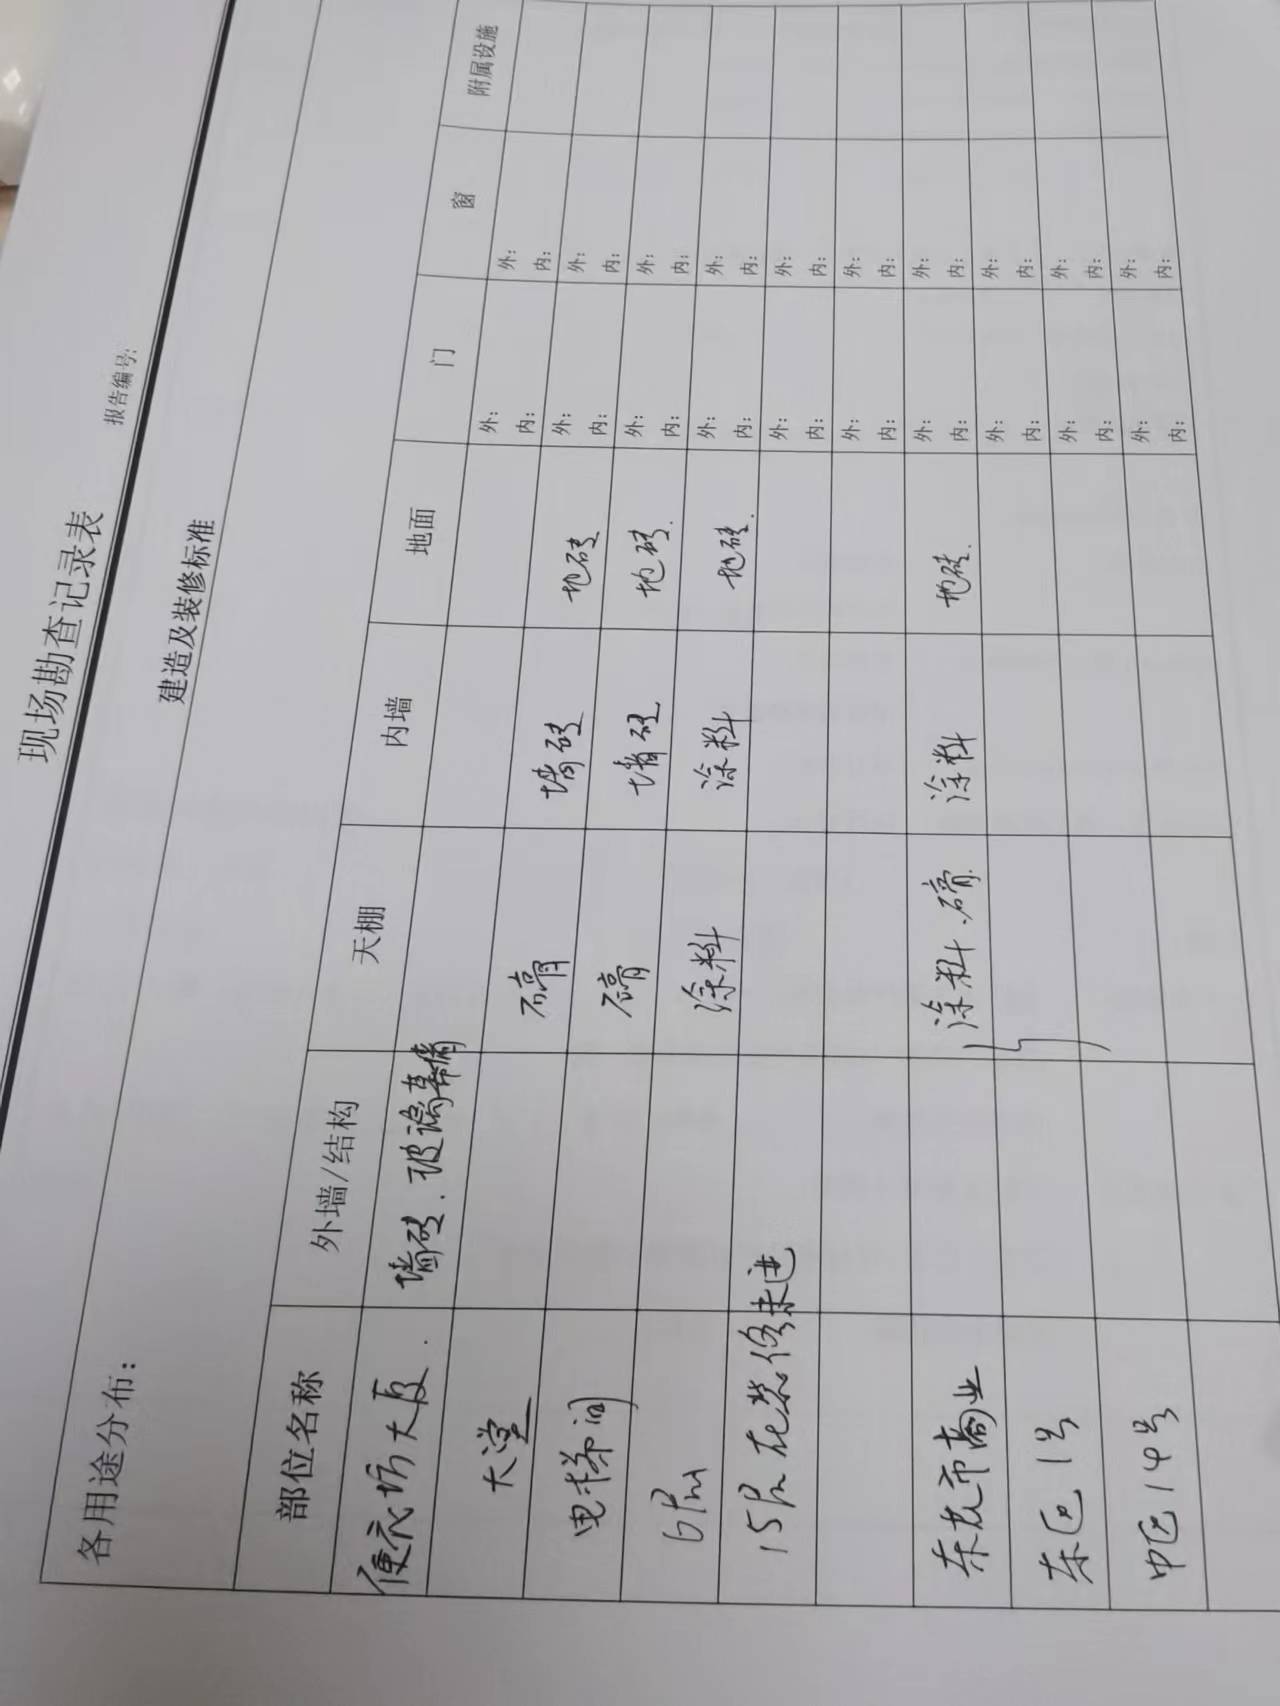 现场勘查记录表
报告编号:
建造及装修标准
各用途分布:
部位名称 外墙/结构 天棚 内墙 地面 门 窗 附属设施
便衣坊大厦. 墙砖.玻璃幕墙 外: 内: 外: 内:
大堂 石膏 墙砖 地砖 外: 内: 外: 内:
电梯间 石膏 墙砖 地砖. 外: 内: 外: 内:
涂料 涂料 地砖. 外: 内: 外: 内:
15层在装修未进 外: 内: 外: 内:
外: 内: 外: 内:
商业 涂料.石膏. 涂料 地砖. 外: 内: 外: 内:
东区1号 外: 内: 外: 内:
中区14号 外: 内: 外: 内:
外: 内: 外: 内: